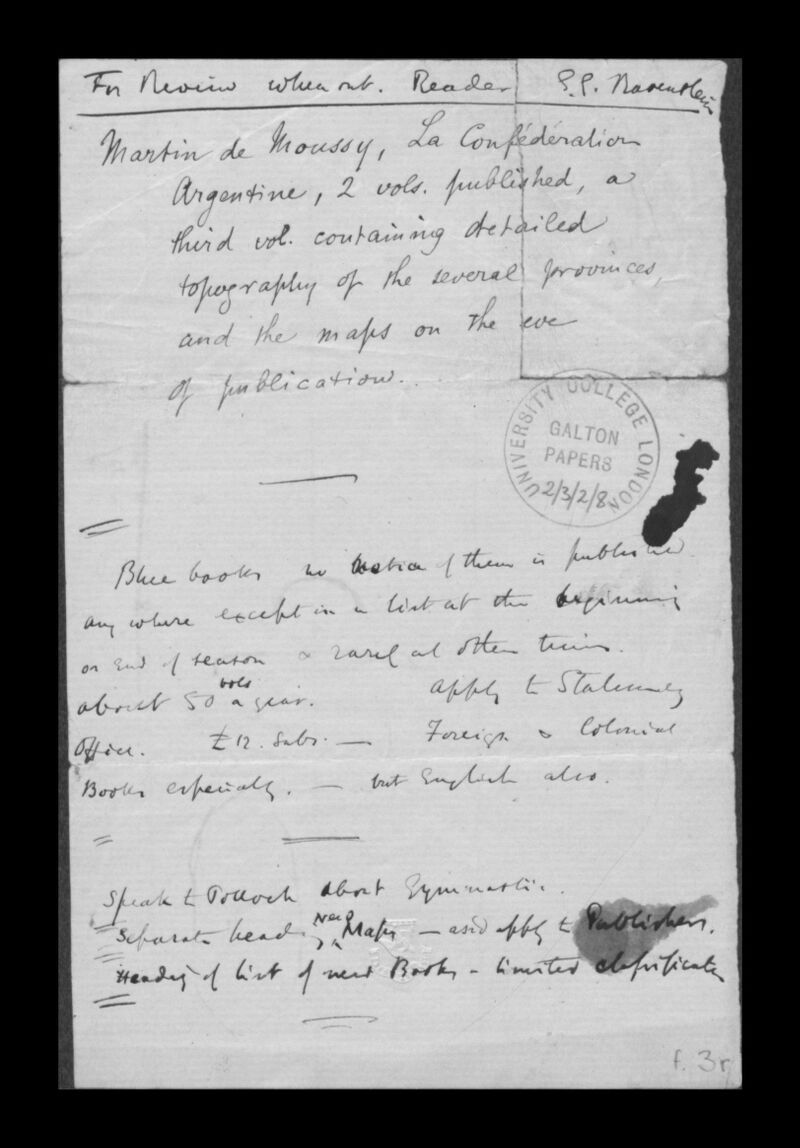 For Review when out. Reader E.G. Ravenstein
Martin de Moussy, La Confédération
Argentine, 2 vols. published, a
third vol. containing detailed
topography of the several provinces,
and the maps on the eve
of publication.
UNIVERSITY COLLEGE LONDON
GALTON
PAPERS
2/3/2/8
Blue books no notice of them is published
any where except in a list at the beginning
or end of season & rarely at other times.
about 50 vols a year. apply to Stationery
Office. £12. Subs. — Foreign & Colonial
Books especially. — but English also.
Speak to Pollock about Gymnastic.
Separate heading New Maps — and apply to Publishers.
Heading of list of new Books – limited classification
f. 3r